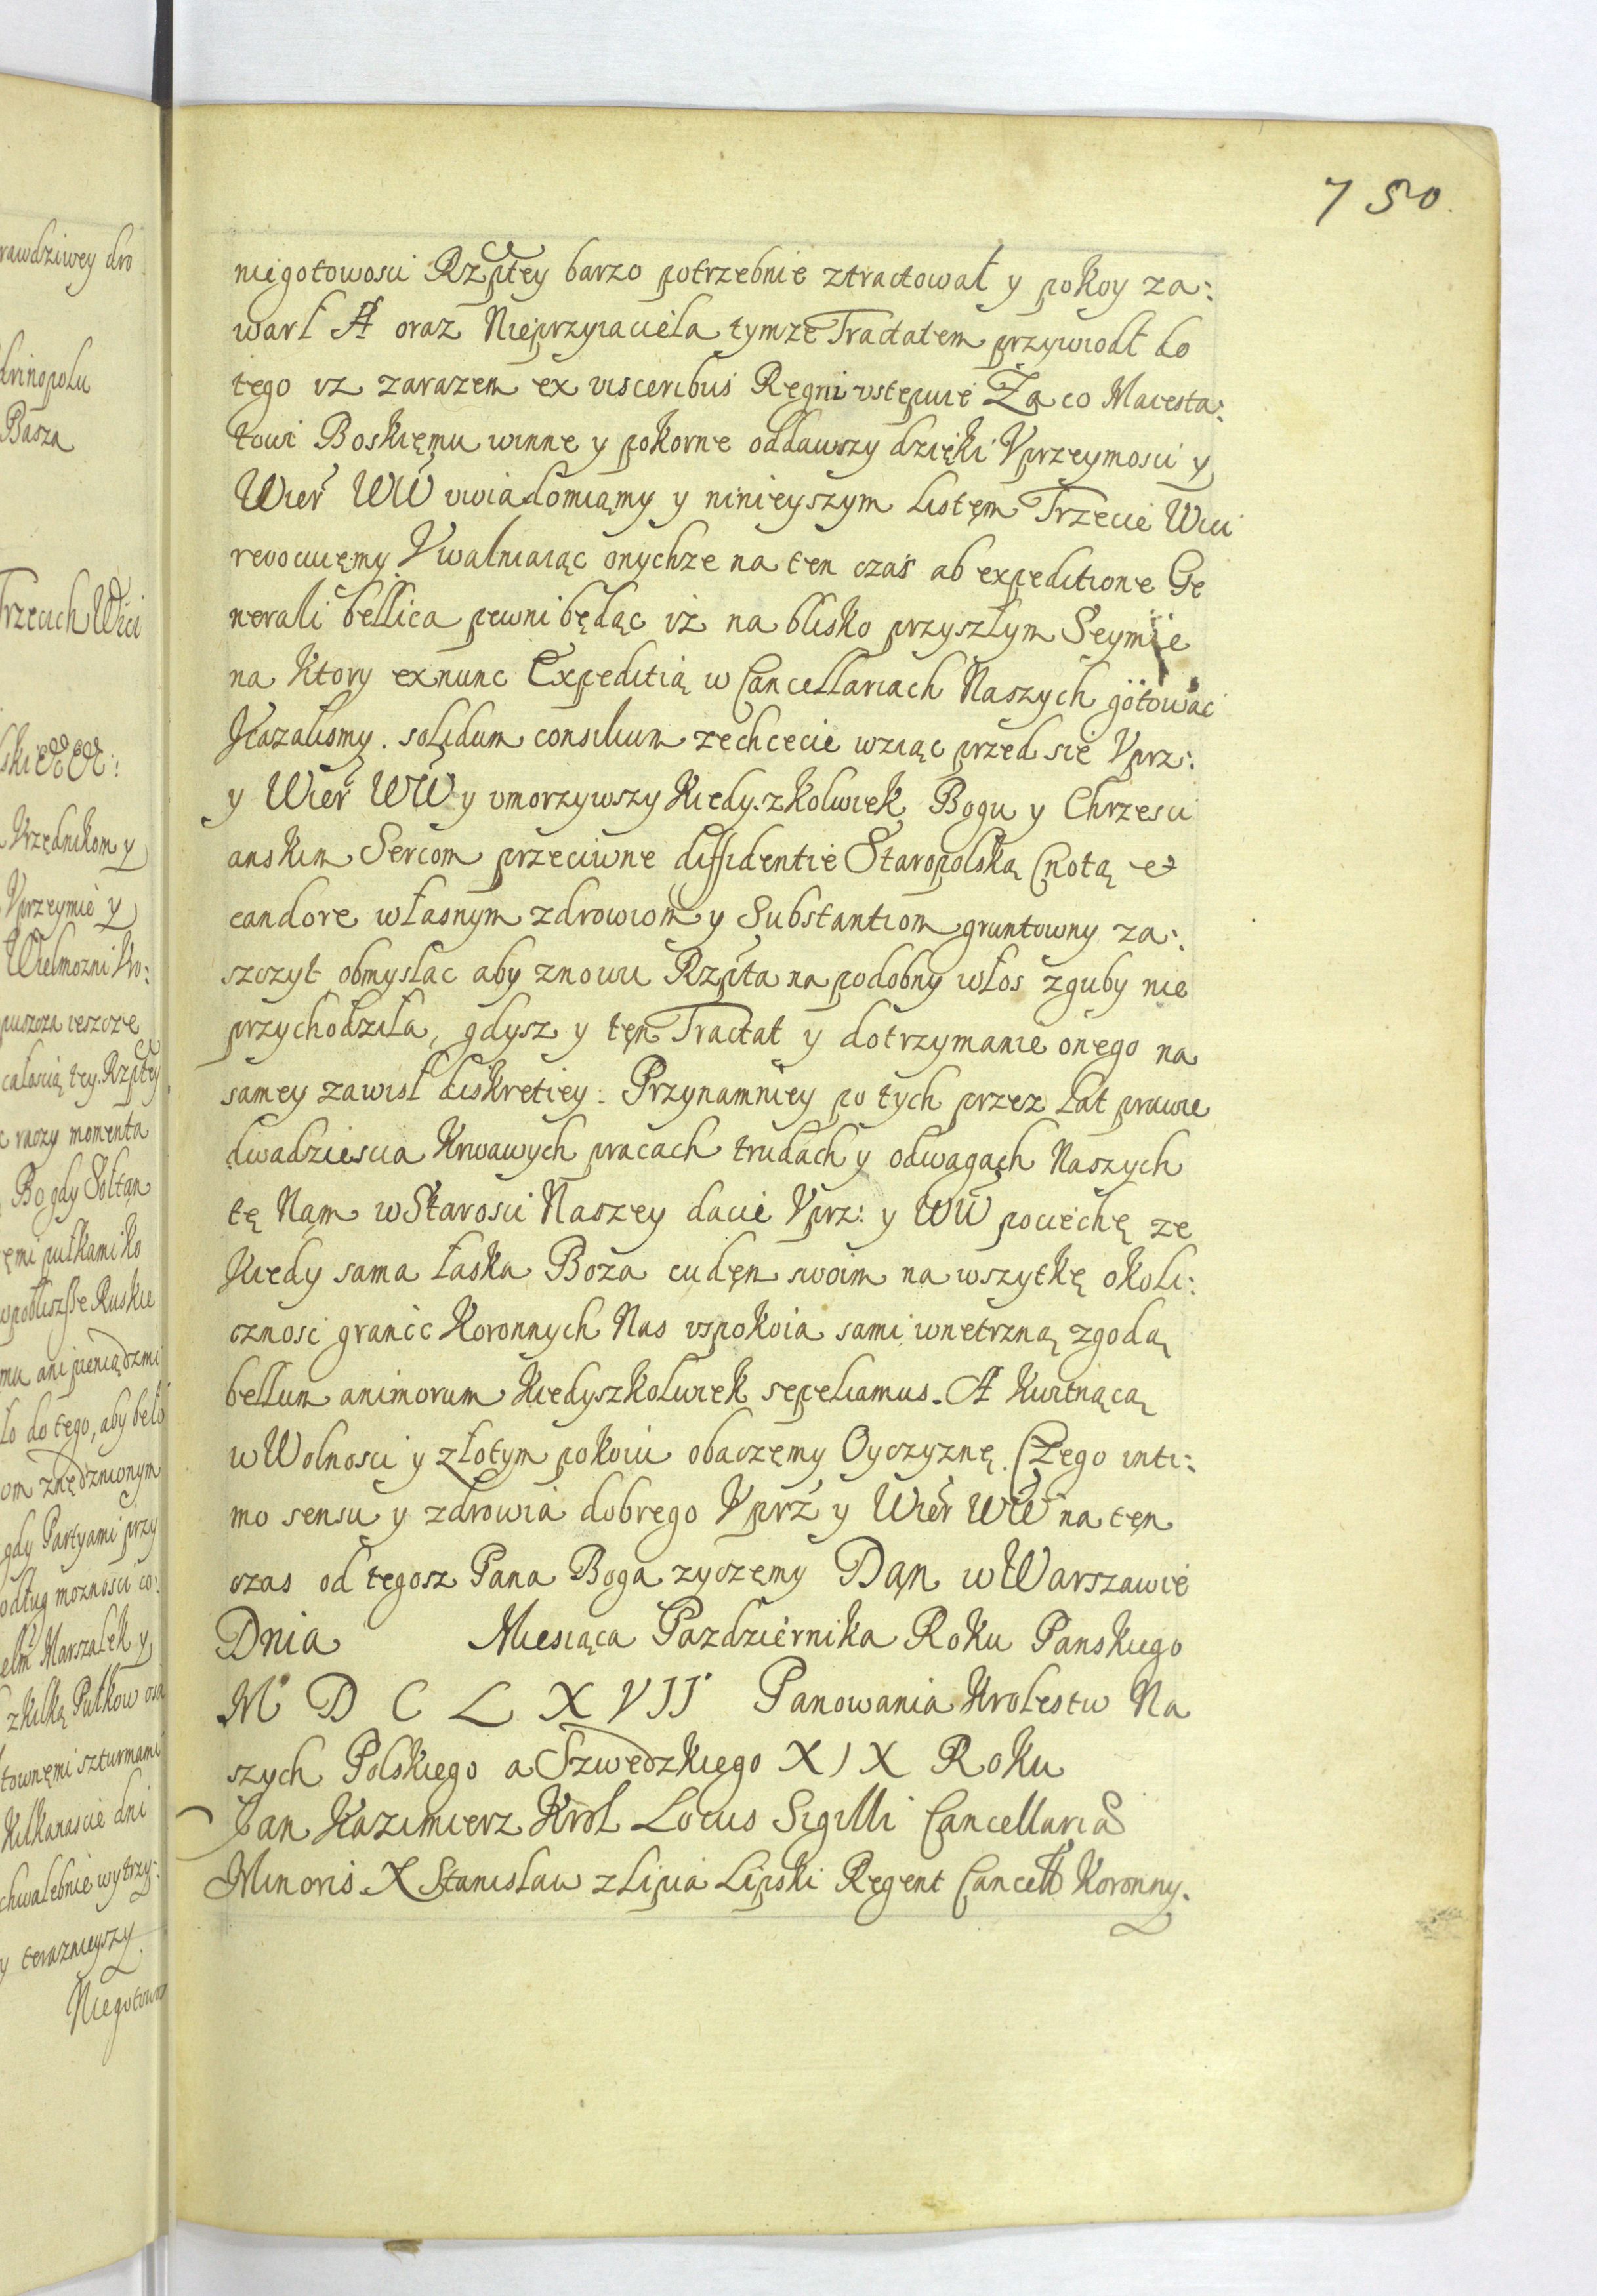 750
niegotowosci Rzptey barzo potrzebnie ztractował y pokoy za:
warł A oraz Nieprzyiaciela tymze Tractatem przywiodł do
tego iz zarazem ex visceribus Regni vstępuie Za co Maiesta:
towi Boskiemu winne y pokorne oddawszy dzięki Vprzeymosci y
Wier WW uwiadomiamy y ninieyszym listem Trzecie Wici
revocuiemy Vwalniaiąc onychze na ten czas ab expeditione Ge
nerali bellica pewni będąc iz na blisko przyszłym Seymie
na ktory ex nunc Expeditią w Cancellariach Naszych gotowac
kazalismy. solidum consilium zechcecie wziąc przed sie Vprz:
y Wier WW y vmorzywszy kiedyszkolwiek Bogu y Chrzesci
anskim Sercom przeciwne diffidentie Staropolską Cnotą et
candore własnym zdrowiom y Substantiom gruntowny za:
szczyt obmyslac aby znowu Rzpta na podobny włos zguby nie
przychodziła, gdysz y ten Tractat y dotrzymanie onego na
samey zawisł diskretiey. Przynamniey po tych przez lat prawie
dwadziescia krwawych pracach trudach y odwagach Naszych
tę Nam w Starosci Naszey dacie Vprz: y WW pociechę ze
kiedy sama łaska Boza cudem swoim na wszytkę okoli:
cznosc granic Koronnych Nas vspokoia sami wnetrzną zgodą
bellum animorum kiedyszkolwiek sepeliamus. A kwitnącą
w Wolnosci y złotym pokoiu obaczemy Oyczyznę. Czego inti:
mo sensu y zdrowia dobrego Vprz y Wier WW na ten
czas od tegosz Pana Boga zyczemy Dan w Warszawie
Dnia Miesiąca Pazdziernika Roku Panskiego
M D C L X VII Panowania Krolestw Na
szych Polskiego a Szwedzkiego XIX Roku
Jan Kazimierz Krol Locus Sigilli Cancellaria
Minoris X Stanisław z Lipia Lipski Regent Cancell Koronny.
rawdziwey dro
Basza
Trzecich Wici
Vrzędnikom y
Vprzeymie y
Wielmozni
puszcza ieszcze
całoscią tey Rzptey
raczy momenta
Bo gdy Sołtan
emi pułkami ko
mu ani pieniądzmi
ło do tego, aby beło
om znędznionym
gdy Partyami przy
odług moznosci co:
Marszałek y
z kilką Pułkow
townemi szturmami
kilkanascie dni
chwalebnie wytrzy:
y teraznieyszy
Niegotowo